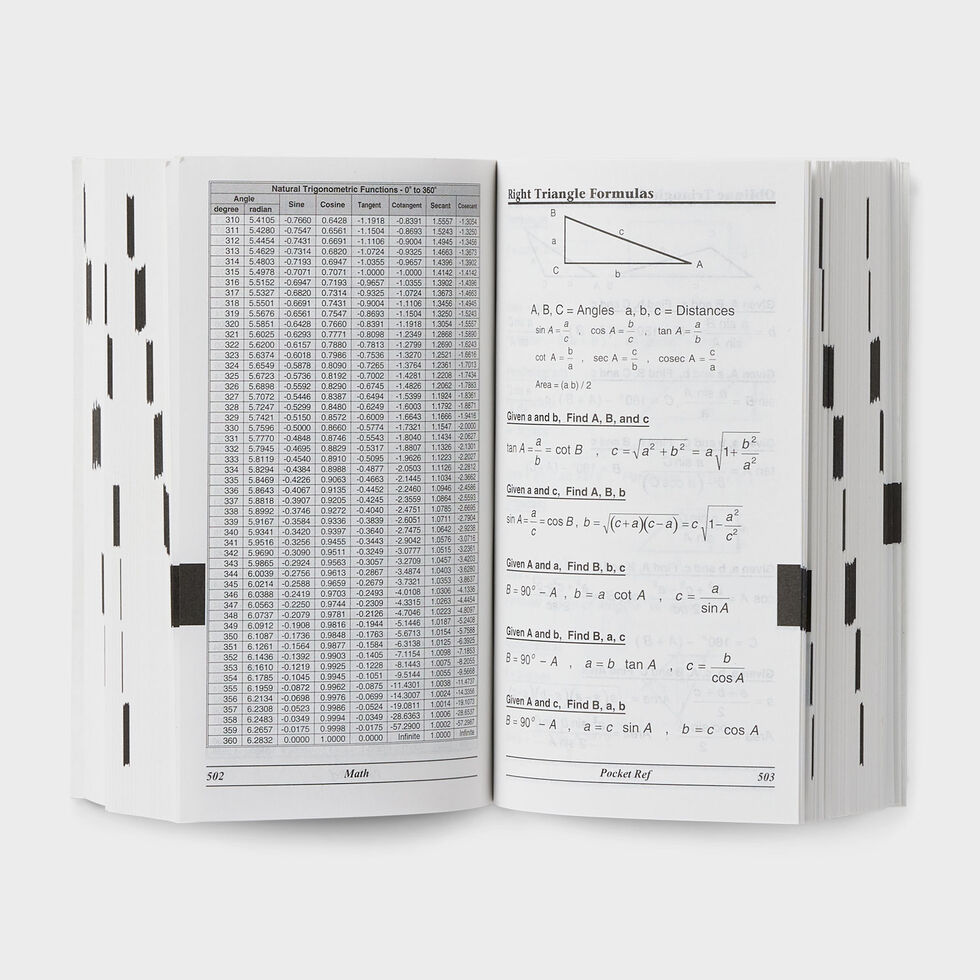 Natural Trigonometric Functions - 0° to 360°
Angle
degree radian Sine Cosine Tangent Cotangent Secant Cosecant
310 5.4105 -0.7660 0.6428 -1.1918 -0.8391 1.5557 -1.3054
311 5.4280 -0.7547 0.6561 -1.1504 -0.8693 1.5243 -1.3250
312 5.4454 -0.7431 0.6691 -1.1106 -0.9004 1.4945 -1.3456
313 5.4629 -0.7314 0.6820 -1.0724 -0.9325 1.4663 -1.3673
314 5.4803 -0.7193 0.6947 -1.0355 -0.9657 1.4396 -1.3902
315 5.4978 -0.7071 0.7071 -1.0000 -1.0000 1.4142 -1.4142
316 5.5152 -0.6947 0.7193 -0.9657 -1.0355 1.3902 -1.4396
317 5.5327 -0.6820 0.7314 -0.9325 -1.0724 1.3673 -1.4663
318 5.5501 -0.6691 0.7431 -0.9004 -1.1106 1.3456 -1.4945
319 5.5676 -0.6561 0.7547 -0.8693 -1.1504 1.3250 -1.5243
320 5.5851 -0.6428 0.7660 -0.8391 -1.1918 1.3054 -1.5557
321 5.6025 -0.6293 0.7771 -0.8098 -1.2349 1.2868 -1.5890
322 5.6200 -0.6157 0.7880 -0.7813 -1.2799 1.2690 -1.6243
323 5.6374 -0.6018 0.7986 -0.7536 -1.3270 1.2521 -1.6616
324 5.6549 -0.5878 0.8090 -0.7265 -1.3764 1.2361 -1.7013
325 5.6723 -0.5736 0.8192 -0.7002 -1.4281 1.2208 -1.7434
326 5.6898 -0.5592 0.8290 -0.6745 -1.4826 1.2062 -1.7883
327 5.7072 -0.5446 0.8387 -0.6494 -1.5399 1.1924 -1.8361
328 5.7247 -0.5299 0.8480 -0.6249 -1.6003 1.1792 -1.8871
329 5.7421 -0.5150 0.8572 -0.6009 -1.6643 1.1666 -1.9416
330 5.7596 -0.5000 0.8660 -0.5774 -1.7321 1.1547 -2.0000
331 5.7770 -0.4848 0.8746 -0.5543 -1.8040 1.1434 -2.0627
332 5.7945 -0.4695 0.8829 -0.5317 -1.8807 1.1326 -2.1301
333 5.8119 -0.4540 0.8910 -0.5095 -1.9626 1.1223 -2.2027
334 5.8294 -0.4384 0.8988 -0.4877 -2.0503 1.1126 -2.2812
335 5.8469 -0.4226 0.9063 -0.4663 -2.1445 1.1034 -2.3662
336 5.8643 -0.4067 0.9135 -0.4452 -2.2460 1.0946 -2.4586
337 5.8818 -0.3907 0.9205 -0.4245 -2.3559 1.0864 -2.5593
338 5.8992 -0.3746 0.9272 -0.4040 -2.4751 1.0785 -2.6695
339 5.9167 -0.3584 0.9336 -0.3839 -2.6051 1.0711 -2.7904
340 5.9341 -0.3420 0.9397 -0.3640 -2.7475 1.0642 -2.9238
341 5.9516 -0.3256 0.9455 -0.3443 -2.9042 1.0576 -3.0716
342 5.9690 -0.3090 0.9511 -0.3249 -3.0777 1.0515 -3.2361
343 5.9865 -0.2924 0.9563 -0.3057 -3.2709 1.0457 -3.4203
344 6.0039 -0.2756 0.9613 -0.2867 -3.4874 1.0403 -3.6280
345 6.0214 -0.2588 0.9659 -0.2679 -3.7321 1.0353 -3.8637
346 6.0388 -0.2419 0.9703 -0.2493 -4.0108 1.0306 -4.1336
347 6.0563 -0.2250 0.9744 -0.2309 -4.3315 1.0263 -4.4454
348 6.0737 -0.2079 0.9781 -0.2126 -4.7046 1.0223 -4.8097
349 6.0912 -0.1908 0.9816 -0.1944 -5.1446 1.0187 -5.2408
350 6.1087 -0.1736 0.9848 -0.1763 -5.6713 1.0154 -5.7588
351 6.1261 -0.1564 0.9877 -0.1584 -6.3138 1.0125 -6.3925
352 6.1436 -0.1392 0.9903 -0.1405 -7.1154 1.0098 -7.1853
353 6.1610 -0.1219 0.9925 -0.1228 -8.1443 1.0075 -8.2055
354 6.1785 -0.1045 0.9945 -0.1051 -9.5144 1.0055 -9.5668
355 6.1959 -0.0872 0.9962 -0.0875 -11.4301 1.0038 -11.4737
356 6.2134 -0.0698 0.9976 -0.0699 -14.3007 1.0024 -14.3356
357 6.2308 -0.0523 0.9986 -0.0524 -19.0811 1.0014 -19.1073
358 6.2483 -0.0349 0.9994 -0.0349 -28.6363 1.0006 -28.6537
359 6.2657 -0.0175 0.9998 -0.0175 -57.2900 1.0002 -57.2987
360 6.2832 0.0000 1.0000 0.0000 Infinite 1.0000 Infinite
502 Math
Right Triangle Formulas
B
c
a
C b A
A, B, C = Angles a, b, c = Distances
sin A = a/c , cos A = b/c , tan A = a/b
cot A = b/a , sec A = c/b , cosec A = c/a
Area = (a b) / 2
Given a and b, Find A, B, and c
tan A = a/b = cot B , c = √(a² + b²) = a √(1 + b²/a²)
Given a and c, Find A, B, b
sin A = a/c = cos B , b = √((c+a)(c−a)) = c √(1 − a²/c²)
Given A and a, Find B, b, c
B = 90° − A , b = a cot A , c = a/sin A
Given A and b, Find B, a, c
B = 90° − A , a = b tan A , c = b/cos A
Given A and c, Find B, a, b
B = 90° − A , a = c sin A , b = c cos A
Pocket Ref 503